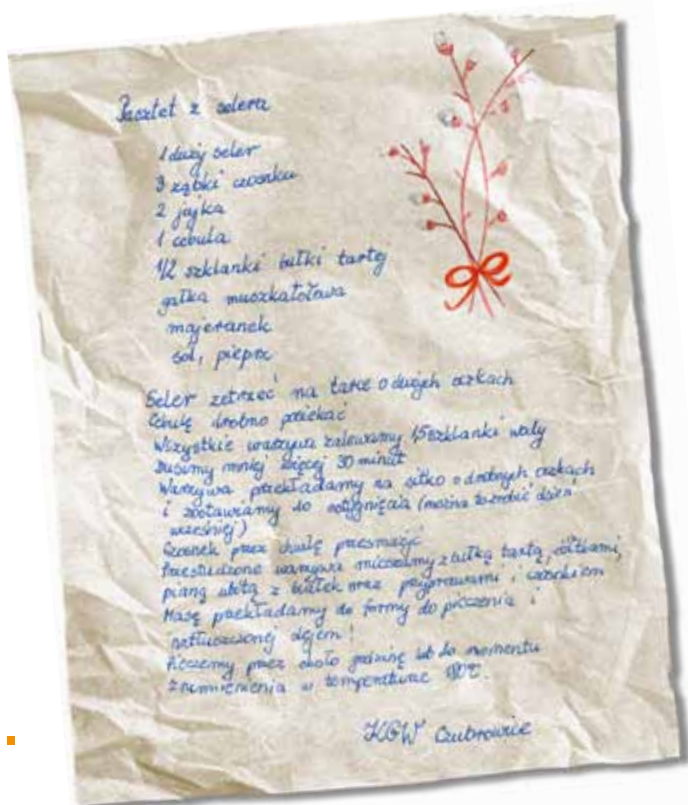 Pasztet z selera
1 duży seler
3 ząbki czosnku
2 jajka
1 cebula
1/2 szklanki bułki tartej
gałka muszkatołowa
majeranek
sól, pieprz
Seler zetrzeć na tarce o dużych oczkach
Cebulę drobno posiekać
Wszystkie warzywa zalewamy 1,5 szklanki wody
Dusimy mniej więcej 30 minut
Warzywa przekładamy na sitko o drobnych oczkach
i zostawiamy do ostygnięcia (można to zrobić dzień
wcześniej)
Czosnek przez chwilę przesmażyć
Przestudzone warzywa mieszamy z bułką tartą, żółtkami,
pianą ubitą z białek oraz przyprawami i czosnkiem
Masę przekładamy do formy do pieczenia i
natłuszczonej olejem!
Pieczemy przez około godzinę lub do momentu
zrumienienia w temperaturze
KGW Czubrowice